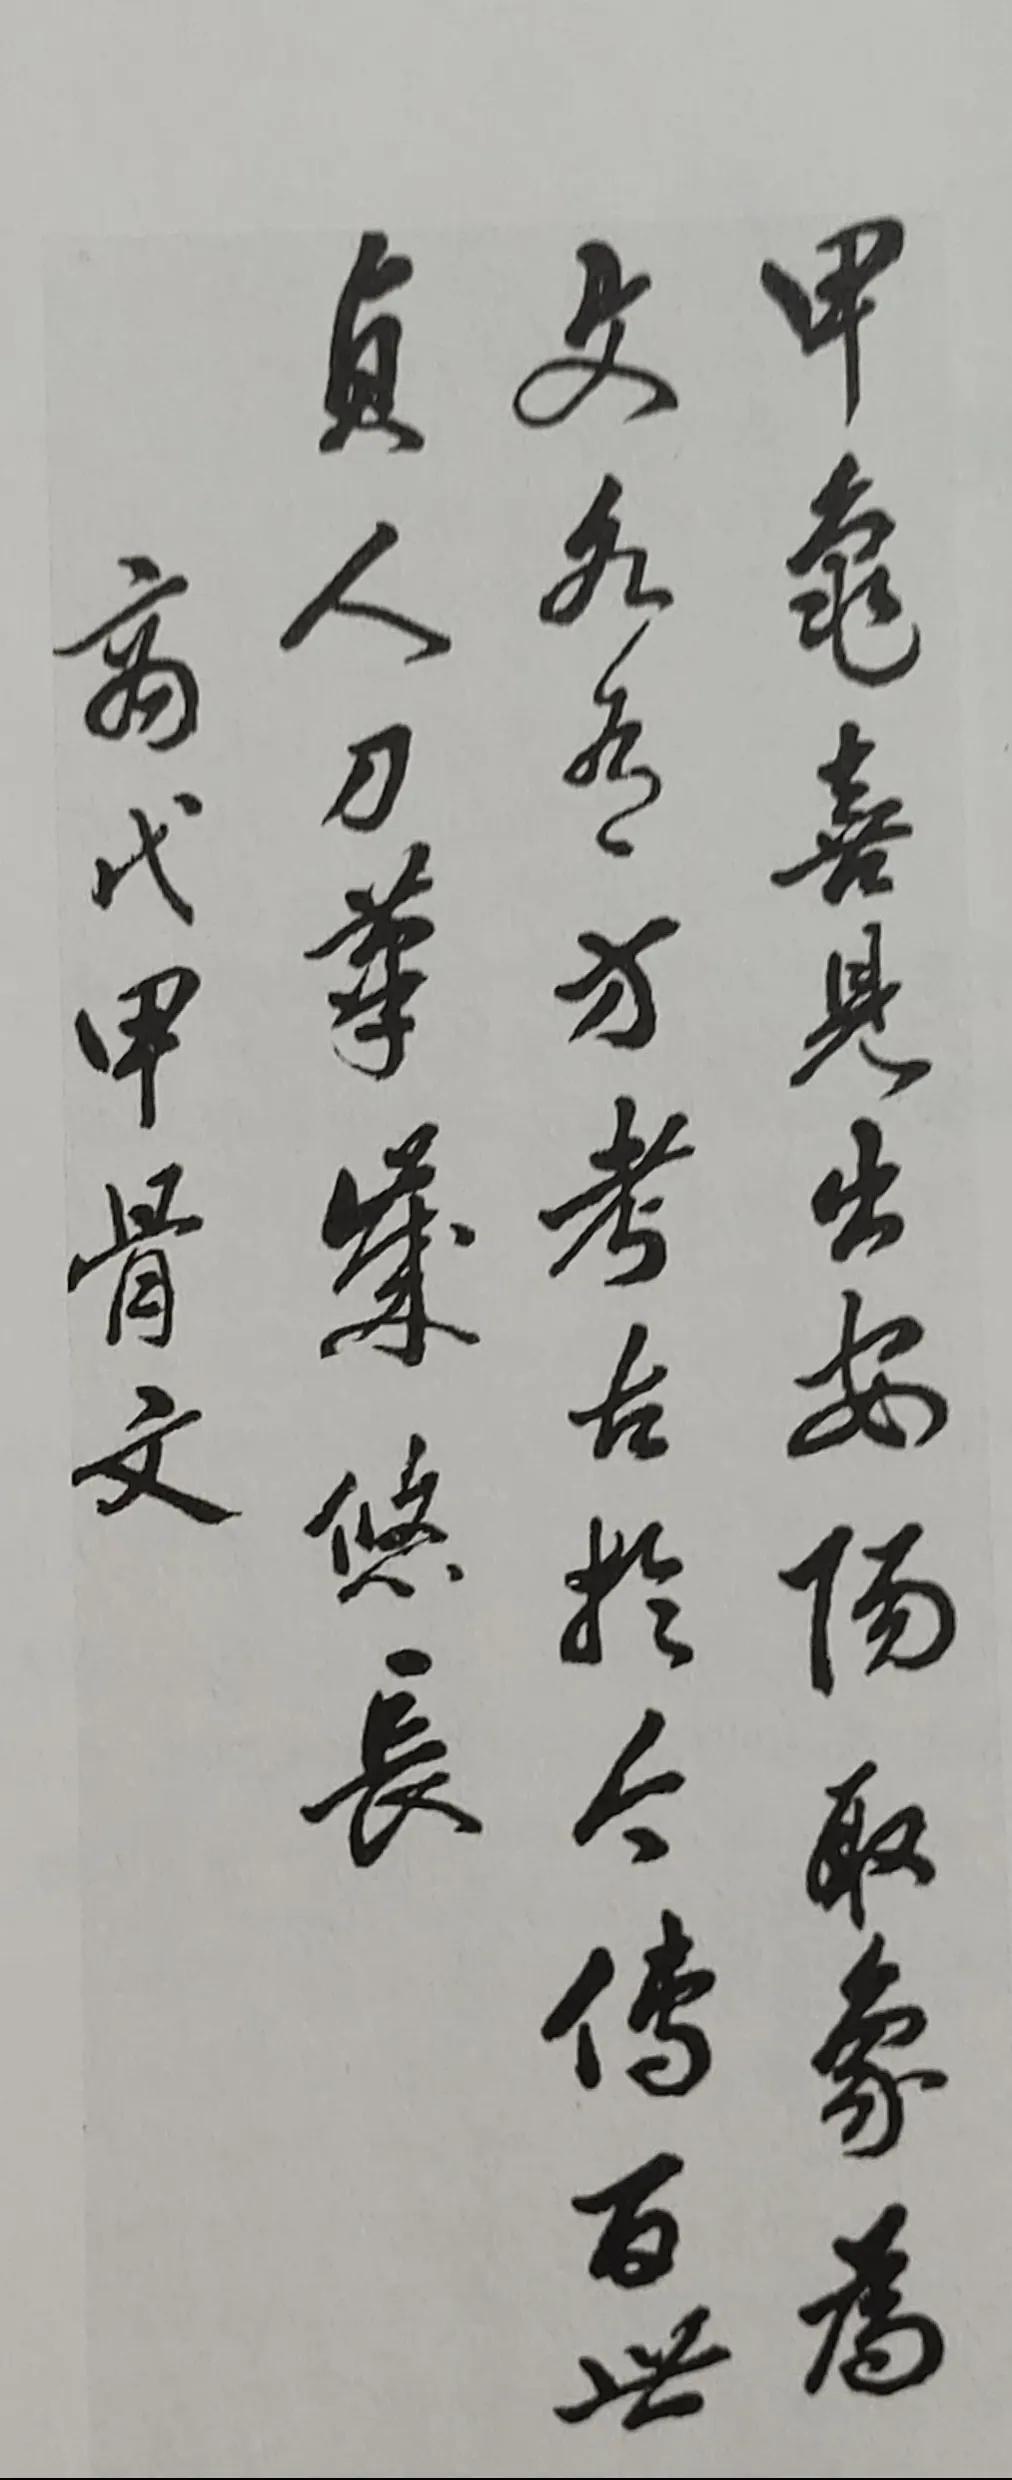 甲龜喜見出安陽取象為
文各有方考古於今傳百世
貞人刀筆悠長
商代甲骨文